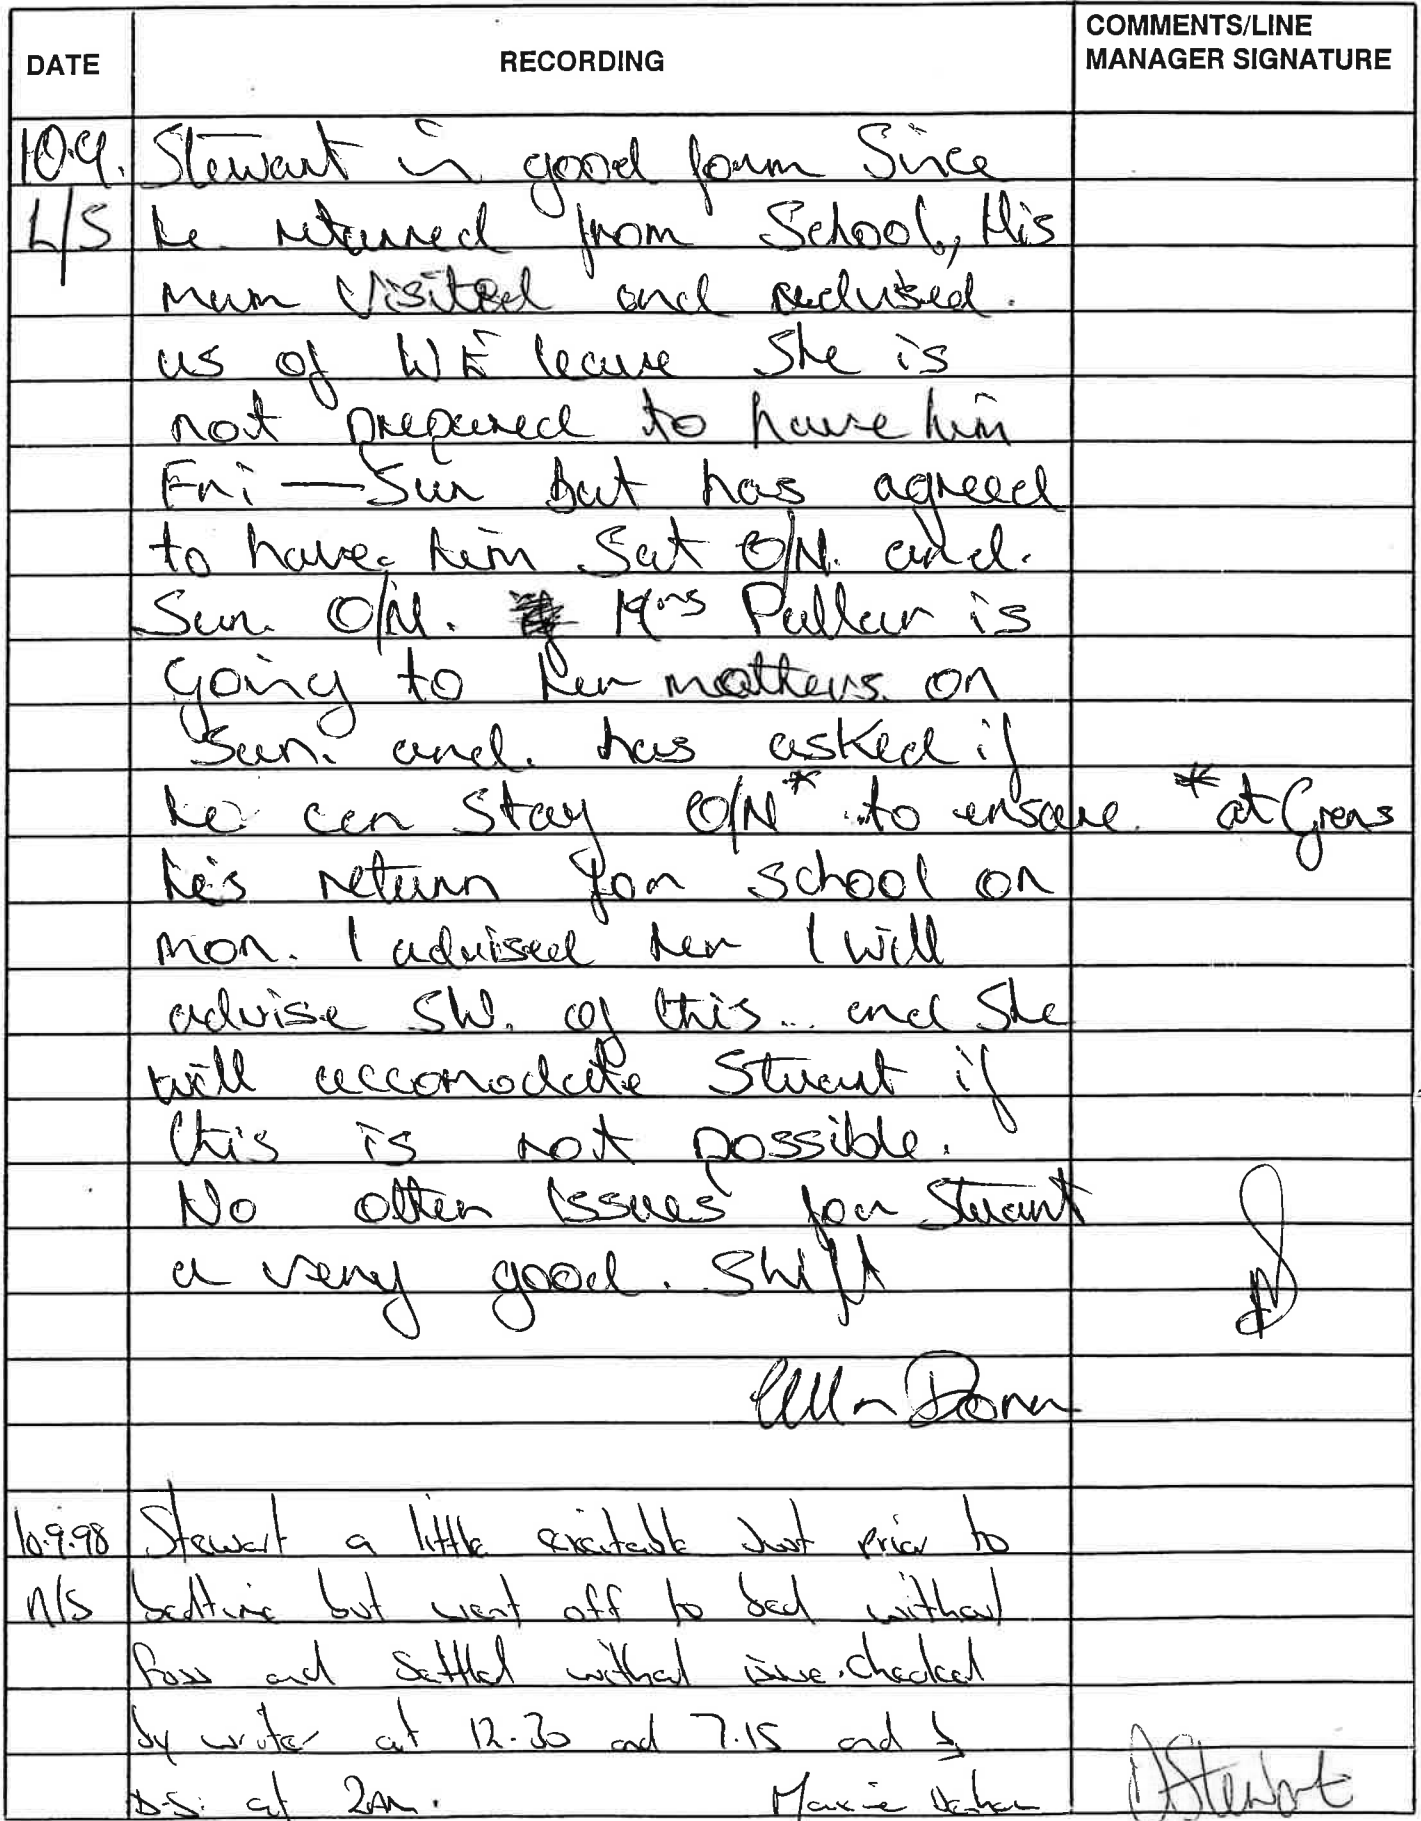 DATE RECORDING COMMENTS/LINE MANAGER SIGNATURE
10.9. Stewart in good form Since
L/S he returned from School, His
mum Visited and advised.
us of WE leave She is
not prepared to have him
Fri — Sun but has agreed
to have him Sat O/N. and.
Sun. O/N. Mrs Pullar is
going to her mothers on
Sun. and. has asked if
he can stay O/N* to ensure *at Grans
he's return for school on
mon. I advised her I will
advise SW. of this.. and She
will accomodate Stuart if
this is not possible.
No other issues for Stuart
a very good. Shift
10.9.98 Stewart a little excitable just prior to
N/S bedtime but went off to bed without
fuss and settled without issue. Checked
by writer at 12.30 and 7.15 and by
D.S. at 2AM. Maxine
Stewart